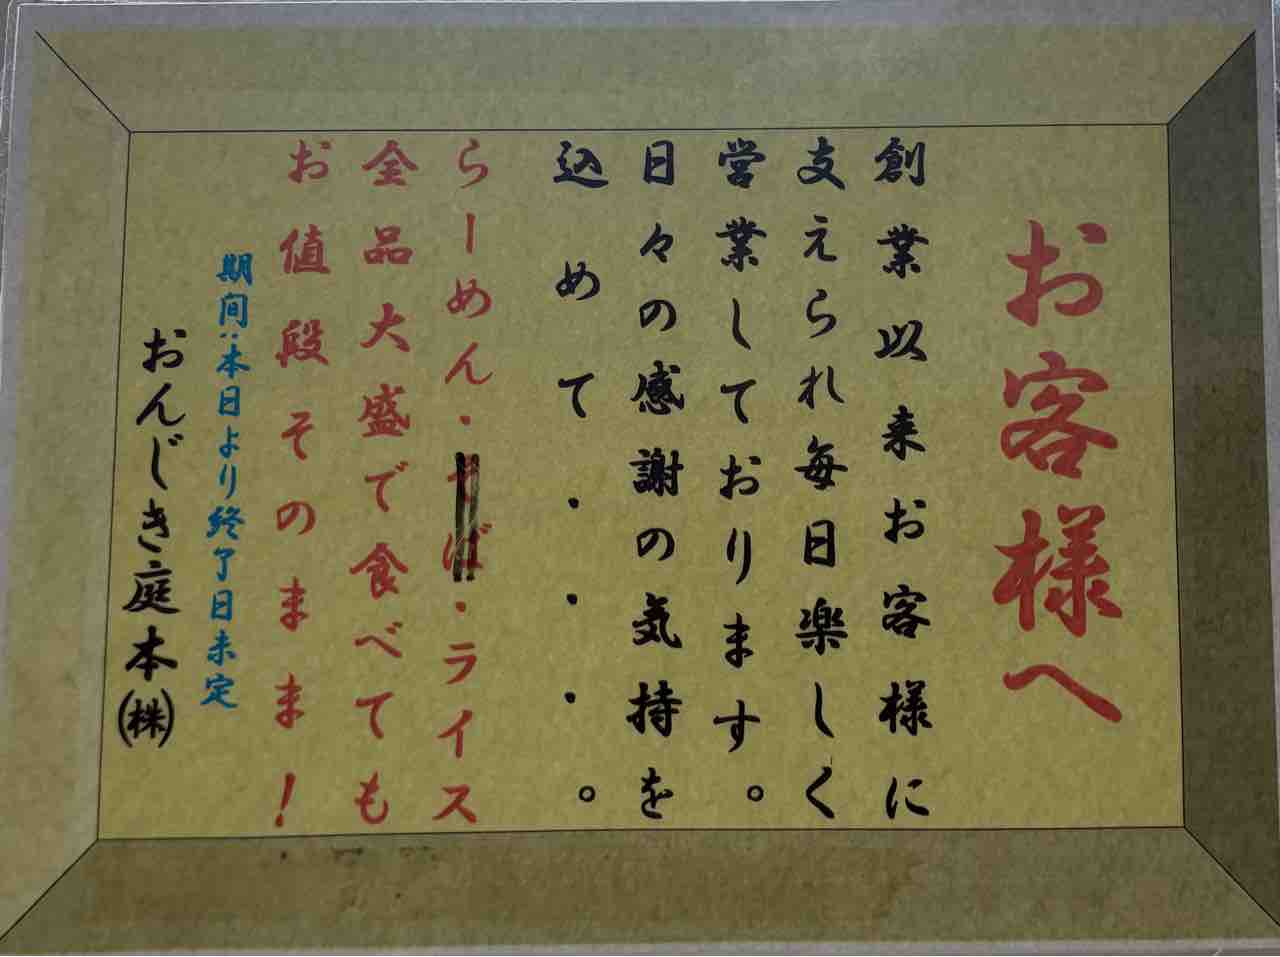 お客様へ
創業以来お客様に
支えられ毎日楽しく
営業しております。
日々の感謝の気持を
込めて・・・。
らーめん・そば・ライス
全品大盛で食べても
お値段そのまま！
期間：本日より終了日未定
おんじき庭本㈱